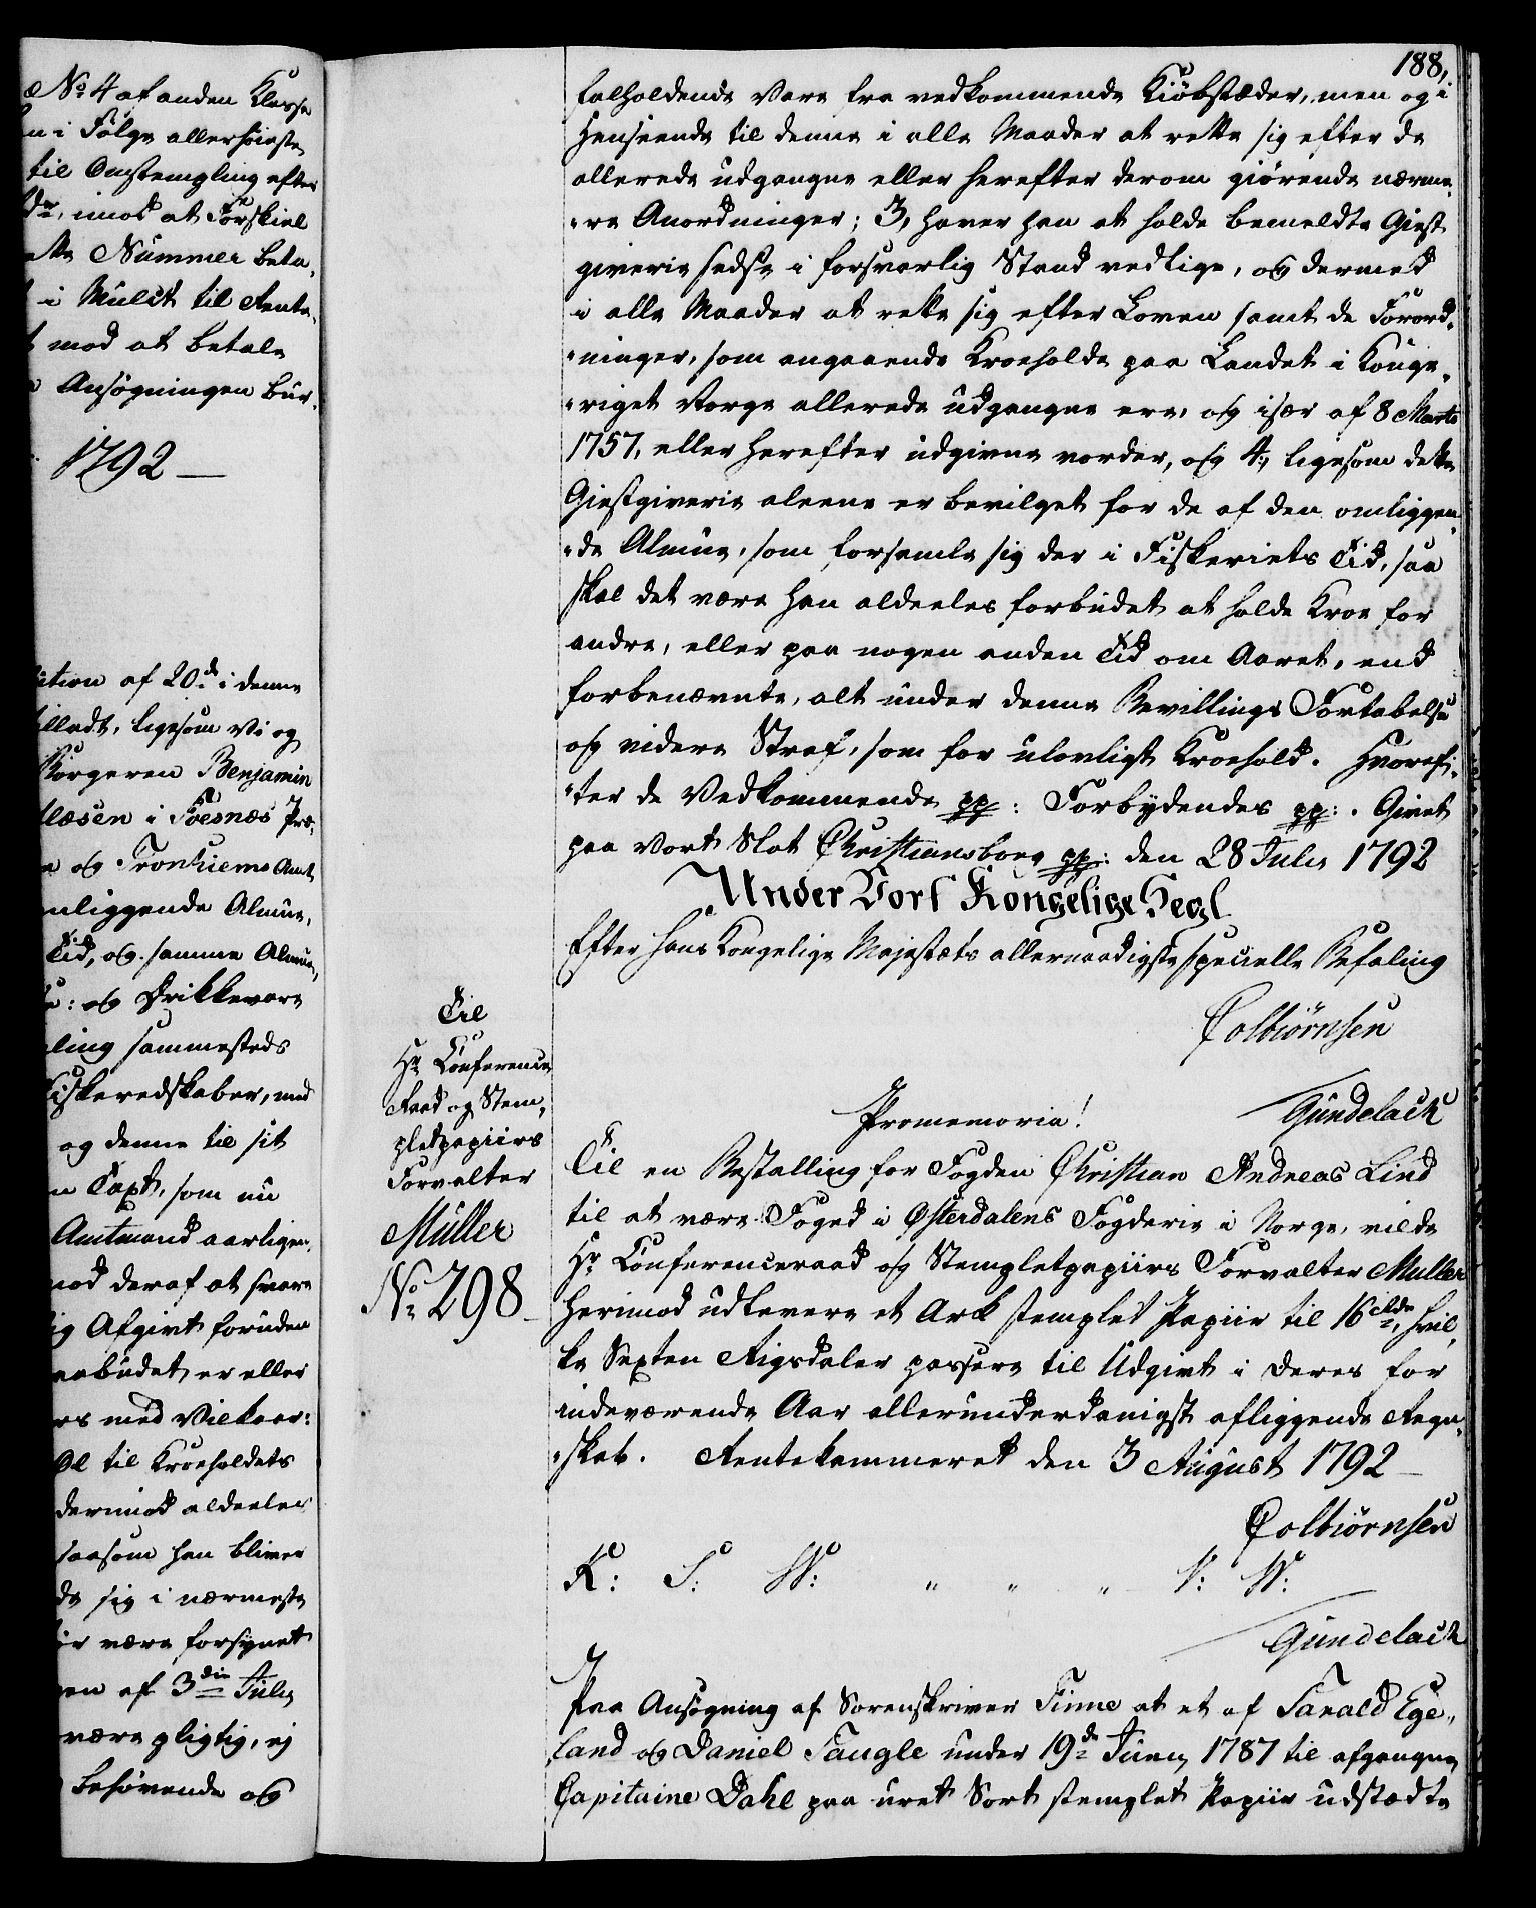 æ No 4 af anden Klasse
n i Følge allerhøieste
til Omstempling efter
dr, imod at Forskiel
ette Nummer beta„
i Mulct til Rente„
mod at betale
Ansøgningen bur„
1792 —
ution af 20de i denne
illadt, ligesom Vi og
Borgeren Benjamin
læsen i Foesnæs Præ„
og Tronhiems Amt,
mliggende Almue,
Tid, og samme Almue„
e: og Drikkevare
ling sammesteds
Fiskeredskaber, med
og denne til sit
n Taxt, som nu
Amtmand aarligen,
mod deraf at svare
ig Afgivt foruden
aabudet er eller
rs med Vilkaar:
Øl til Kroeholdets
derimod aldeeles
saasom han bliver
de sig i nærmeste
ir være forsynet
en af 3die July
være pligtig, ej
behøvende og
188.
falholdende Vare fra vedkommende Kiøbstæder, men og i
Henseende til denne i alle Maader at rette sig efter de
allerede udgangne eller herefter derom giørende nærme„
„re Anordninger; 3, haver han at holde bemeldte Giest
giverie sedse i forsvarlig Stand vedlige, og dermed
i alle Maader at rette sig efter Loven samt de Forord„
„ninger, som angaaende Kroeholde paa Landet i Konge„
„riget Norge allerede udgangne ere, og især af 8 Marts
1757, eller herefter udgivne vorder, og 4, ligesom dette
Giestgiverie aleene er bevilget for de af den omliggen„
„de Almue, som forsamle sig der i Fiskeriets Tid, saa
skal det være han aldeeles forbudet at holde Kroe for
andre, eller paa nogen anden Tid om Aaret, end
forbenævnte, alt under denne Bevillings Fortabelse
og videre Straf, som for ulovligt Kroehold. Hvoref„
„ter de Vedkommende pp: Forbydendes pp: . Givet
paa Vort Slot Christiansborg pp: den 28 July 1792
Under Vort Kongelige Segl
Efter Hans Kongelige Majestæts allernaadigste specielle Befaling
Colbiørnsen
Gundelach
Til
Hr Conference
Raad og Stem„
pletpapiirs
Forvalter
Müller
No 298
Promemoria!
Til en Bestalling for Fogden Christian Andreas Lind
til at være Foged i Østerdalens Fogderie i Norge, vilde
Hr Conferenceraad og Stempletpapiirs Forvalter Müller
herimod udlevere et Ark stemplet Papiir til 16 rdlr, hvil„
ke Sexten Rigsdaler passere til Udgivt i Deres for
indeværende Aar allerunderdanigst aflæggende Regn„
„skab. Rentekammeret den 3 August 1792 —
Colbiørnsen
K: S: W: „ „ „ V: W:
Gundelach
Paa Ansøgning af Sorenskriver Finne at et af Tarald Ege„
land og Daniel Faugle under 19de Juny 1787 til afgangne
Capitaine Dahl paa uret Sort stemplet Papiir udstædte